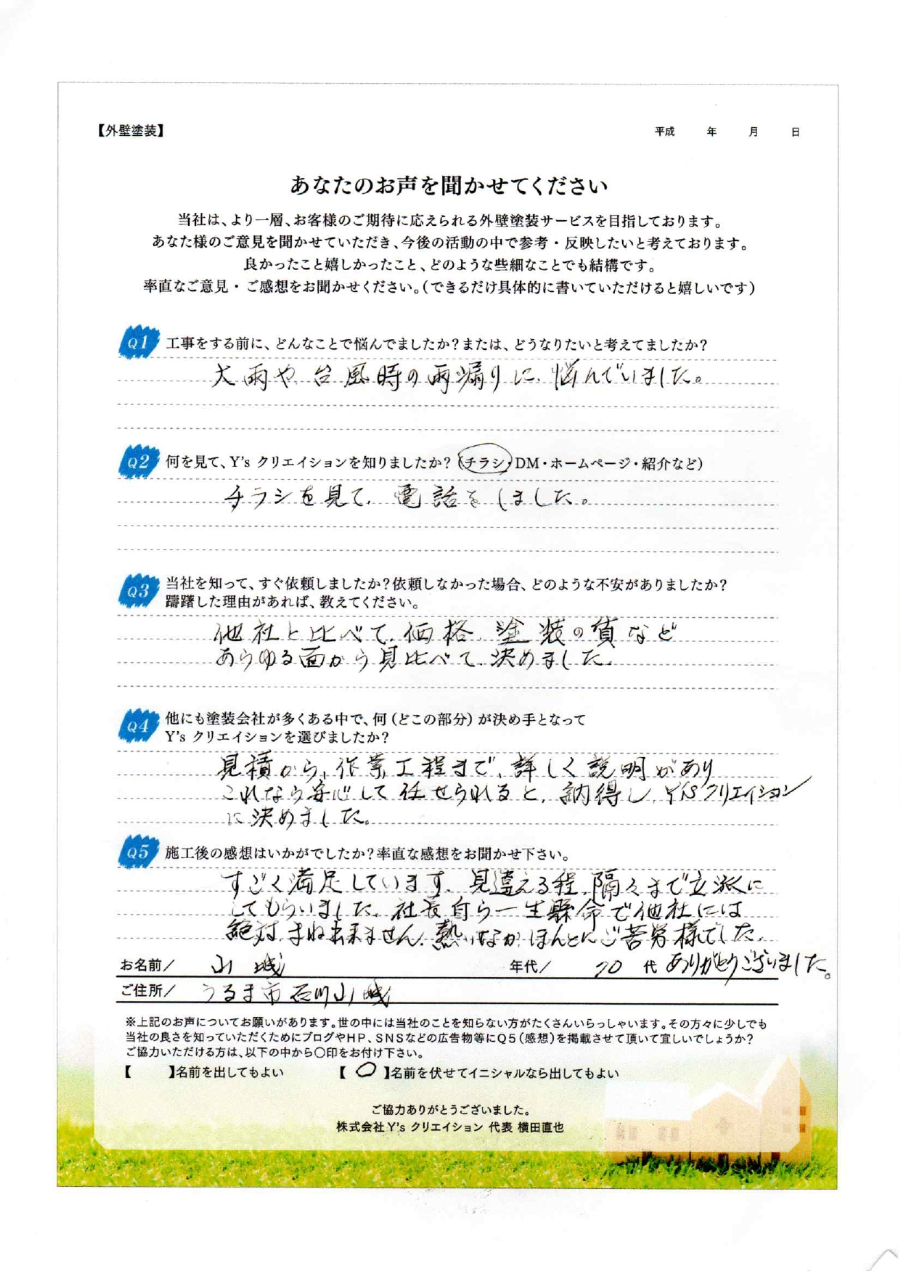 【外壁塗装】
平成　　年　　月　　日
あなたのお声を聞かせてください
当社は、より一層、お客様のご期待に応えられる外壁塗装サービスを目指しております。
あなた様のご意見を聞かせていただき、今後の活動の中で参考・反映したいと考えております。
良かったこと嬉しかったこと、どのような些細なことでも結構です。
率直なご意見・ご感想をお聞かせください。(できるだけ具体的に書いていただけると嬉しいです)
Q1 工事をする前に、どんなことで悩んでましたか?または、どうなりたいと考えてましたか?
大雨や、台風時の雨漏りに、悩んでいました。
Q2 何を見て、Y's クリエイションを知りましたか?(チラシ・DM・ホームページ・紹介など)
チラシを見て、電話をしました。
Q3 当社を知って、すぐ依頼しましたか?依頼しなかった場合、どのような不安がありましたか?
躊躇した理由があれば、教えてください。
他社と比べて、価格、塗装の質など
あらゆる面から見比べて、決めました。
Q4 他にも塗装会社が多くある中で、何(どこの部分)が決め手となって
Y's クリエイションを選びましたか?
見積から、作業工程まで、詳しく説明があり
これなら安心して任せられると、納得し、Y'sクリエイション
に決めました。
Q5 施工後の感想はいかがでしたか?率直な感想をお聞かせ下さい。
すごく満足しています。見違える程、隅々まで立派に
してもらいました。社長自ら一生懸命で他社には
絶対、まね出来ません。熱いなか、ほんとにご苦労様でした。
ありがとうございました。
お名前/　山城　　年代/　70代
ご住所/　うるま市石川山城
※上記のお声についてお願いがあります。世の中には当社のことを知らない方がたくさんいらっしゃいます。その方々に少しでも
当社の良さを知っていただくためにブログやHP、SNSなどの広告物等にQ5(感想)を掲載させて頂いて宜しいでしょうか?
ご協力いただける方は、以下の中から〇印をお付け下さい。
【　　】名前を出してもよい　　【 〇 】名前を伏せてイニシャルなら出してもよい
ご協力ありがとうございました。
株式会社Y's クリエイション 代表 横田直也